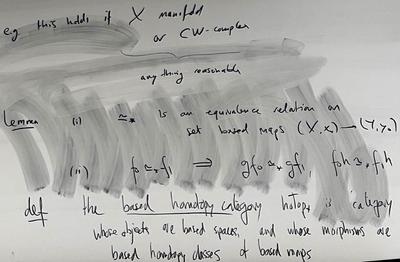 e.g. this holds if X manifold
or CW-complex
anything reasonable
Lemma (i) ≃* is an equivalence relation on
set based maps (X, x₀) → (Y, y₀)
(ii) f₀ ≃* f₁ ⟹ gf₀ ≃* gf₁, f₀h ≃* f₁h
def the based homotopy category hoTop* is category
whose objects are based spaces, and whose morphisms are
based homotopy classes of based maps